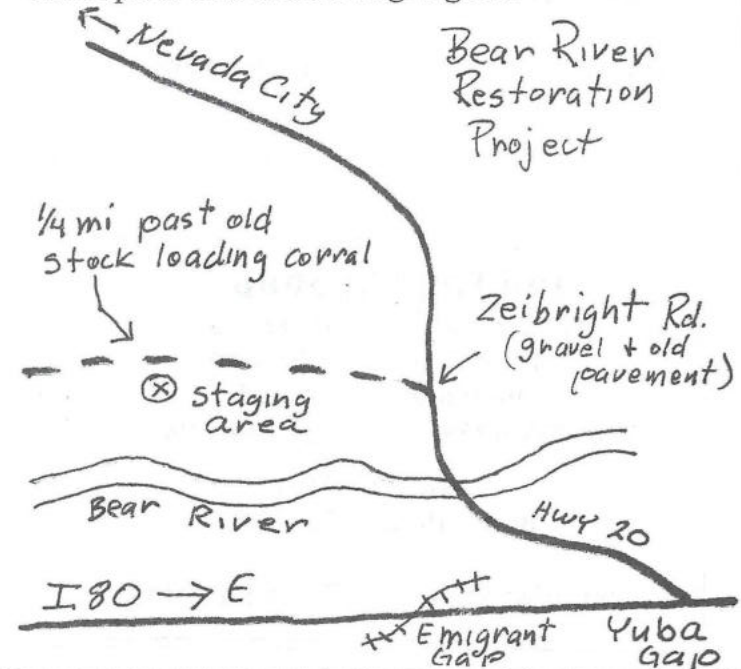 Nevada City
Bear River
Restoration
Project
1/4 mi past old
stock loading corral
Zeibright Rd.
(gravel + old
pavement)
staging
area
Bear River
Hwy 20
I 80 → E
Emigrant
Gap
Yuba
Gap